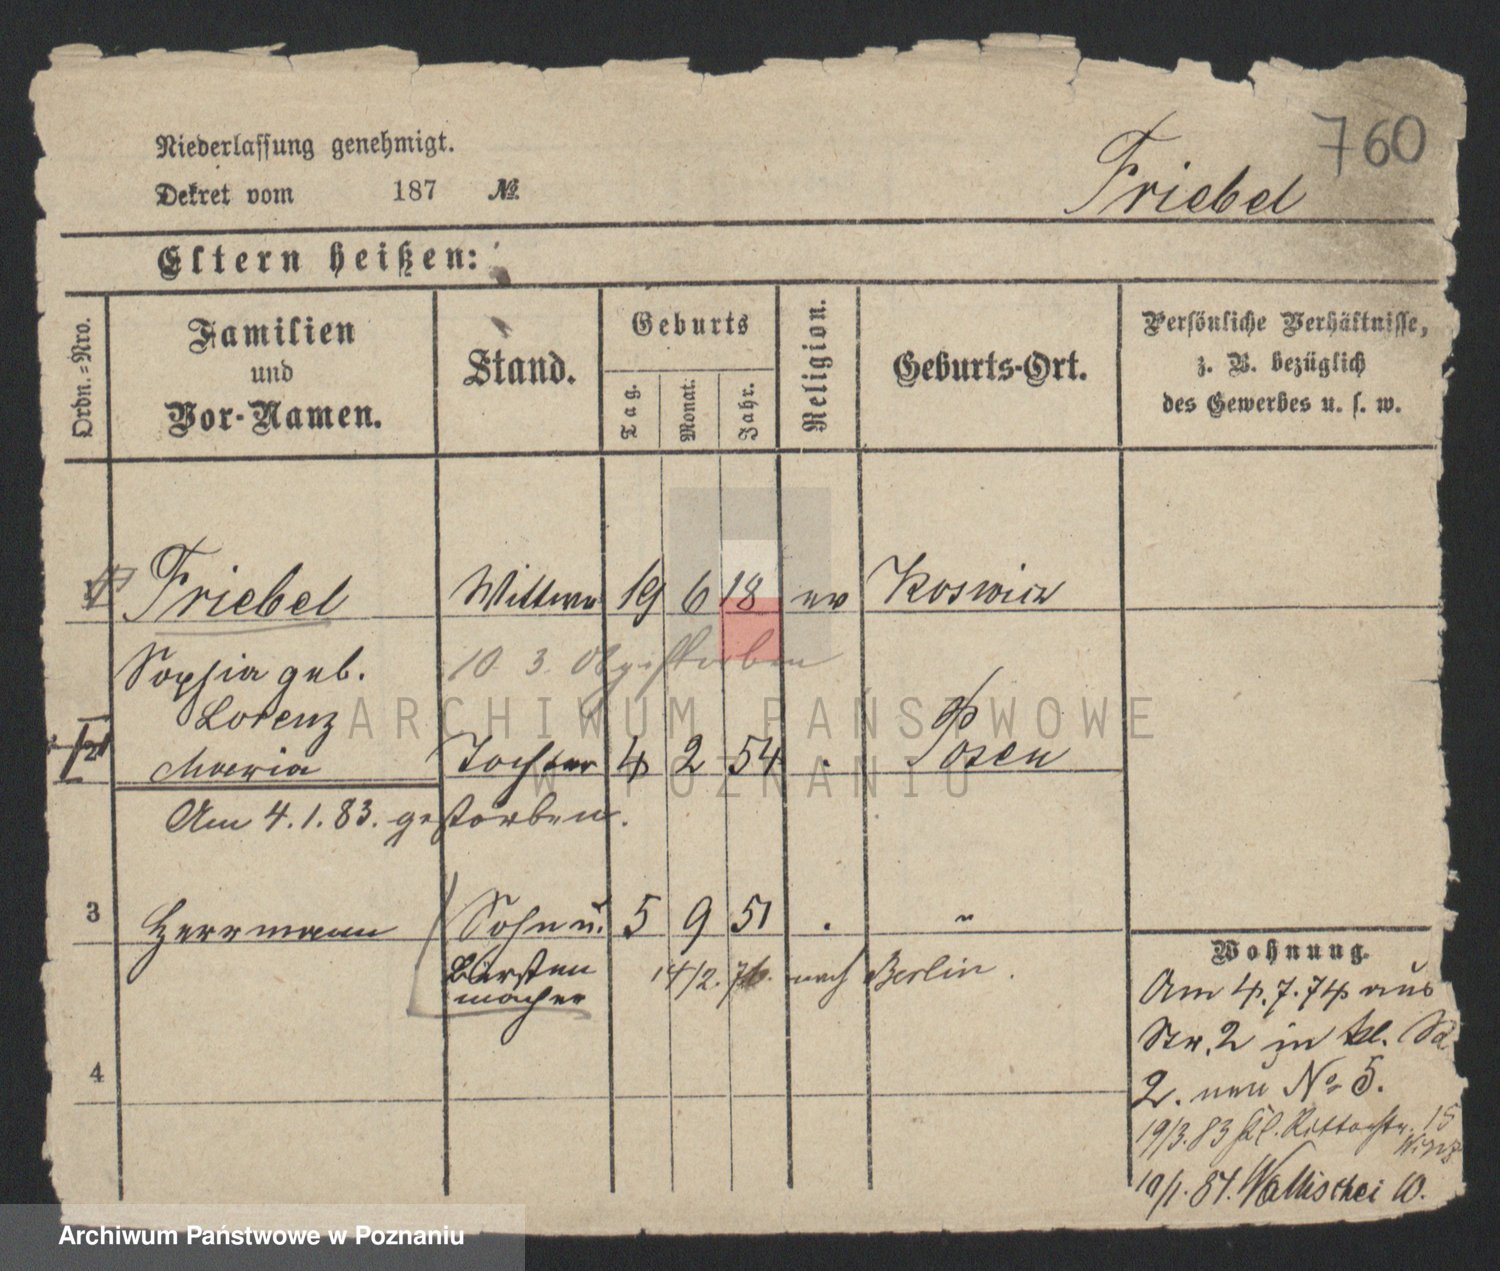 760
Niederlassung genehmigt.
Friebel
Dekret vom 187 №
Eltern heißen:
Ordn.=Nro.
Familien
und
Vor-Namen.
Stand.
Geburts
Tag.
Monat.
Jahr.
Religion.
Geburts-Ort.
Persönliche Verhältnisse,
z. B. bezüglich
des Gewerbes u. s. w.
Friebel Wittwe 19 6 18 ev
Sophia geb. 10. 3. gestorben
Lorenz
2 Maria Tochter 4 2 54 . Posen
Am 4. 1. 83. gestorben.
3 Herrmann Sohn u. 5 9 51 . "
Bürsten 14/2. 76. nach Berlin.
macher
4
Wohnung.
Am 4. 7. 74 aus
Str. 2 in kl.
2. neu No 5.
19/3. 83 kl. Ritterstr. 15
10/1. 87. Wallischei
ARCHIWUM PAŃSTWOWE
W POZNANIU
Archiwum Państwowe w Poznaniu